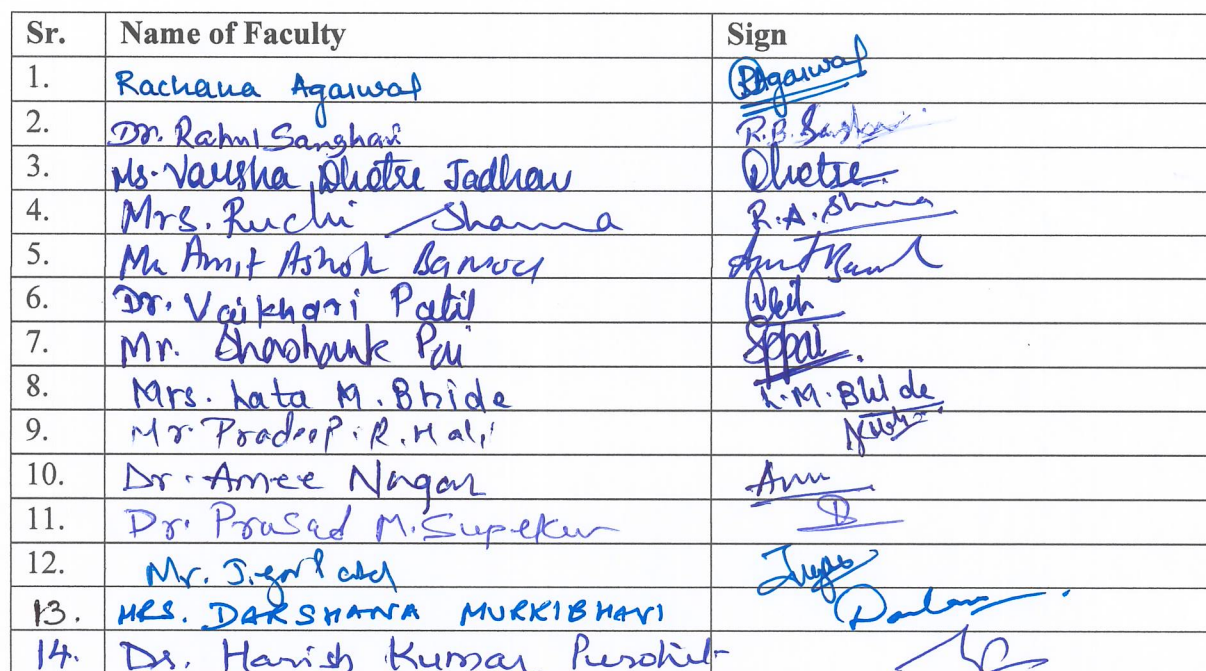 Sr. Name of Faculty Sign
1. Rachana Agarwal RAgarwal
2. Dr. Rahul Sanghavi R.B.
3. Ms. Varsha Dhotre Jadhav Dhotre
4. Mrs. Ruchi Sharma R.A.
5. Mr Amit Ashok
6. Dr. Vaikhari Patil
7. Mr. Shashank Pai SPpai
8. Mrs. Lata M. Bhide L.M. Bhide
9. Mr. Pradeep. R. Hali
10. Dr. Amee Nagar
11. Dr. Prasad M. Supekar
12. Mr. Jigar
13. MRS. DARSHANA MURKIBHAVI
14. Dr. Harish Kumar Purohit